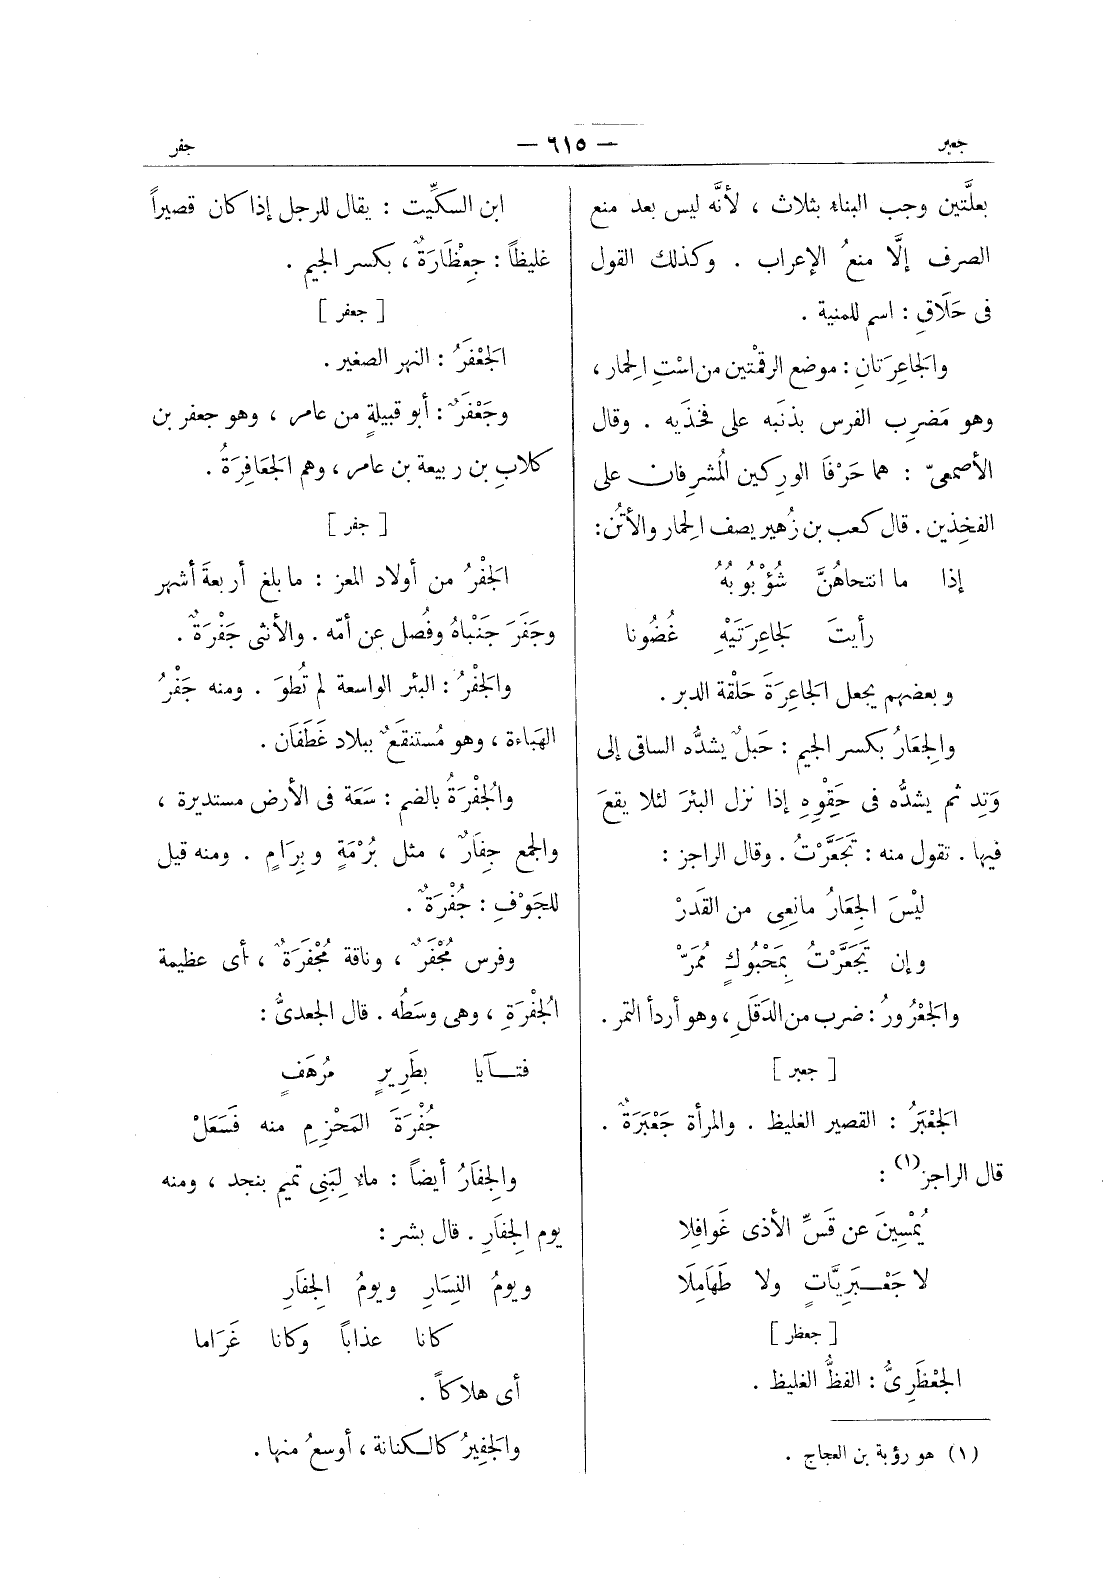 جعبر
— ٦١٥ —
جفر
بعلَّتين وجب البناء بثلاث ، لأنَّه ليس بعد منع
الصرف إلَّا منعُ الإعراب . وكذلك القول
فى حَلَاقِ : اسم للمنية .
والجَاعِرَتانِ : موضع الرقمْتين من اسْتِ الحِمار ،
وهو مَضرِب الفرس بذنَبه على فخذَيه . وقال
الأصمعىّ : هما حَرْفَا الوركين المُشرِفان على
الفخِذين . قال كعب بن زُهير يصف الحِمار والأتُن :
إذا ما انتحاهُنَّ شُؤْبُوبُهُ
رأيتَ لجَاعِرَتَيْهِ غُضُونا
وبعضهم يجعل الجَاعِرَةَ حَلْقة الدبر .
والجِعَارُ بكسر الجيم : حَبلٌ يشدُّه الساقى إلى
وَتِد ثم يشدُّه فى حَقِوِهِ إذا نزل البئرَ لئلا يقعَ
فيها . تقول منه : تَجَعَّرْتُ . وقال الراجز :
ليْسَ الجِعَارُ مانِعِى من القَدَرْ
وإن تَجَعَّرْتُ بِمَحْبُوكٍ مُمَرّْ
والجَعْرُورُ : ضرب من الدَقَلِ ، وهو أردأ التمر .
[ جعبر ]
الجَعْبَرُ : القصير الغليظ . والمرأة جَعْبَرَةٌ .
قال الراجز(١) :
يُمْسِينَ عن قَسِّ الأذى غَوافِلا
لا جَعْبَرِيَّاتٍ ولا طَهَامِلَا
[ جعظر ]
الجَعْظَرِىُّ : الفظُّ الغليظ .
(١) هو رؤبة بن العجاج .
ابن السكِّيت : يقال للرجل إذا كان قصيراً
غليظاً : جِعْظَارَةٌ ، بكسر الجيم .
[ جعفر ]
الجَعْفَرُ : النهر الصغير .
وجَعْفَرٌ : أبو قبيلةٍ من عامر ، وهو جعفر بن
كلابِ بن ربيعة بن عامر ، وهم الجَعَافِرَةُ .
[ جفر ]
الجَفْرُ من أولاد المعز : ما بلغ أربعةَ أشهر
وجَفَرَ جَنْباهُ وفُصل عن أمّه . والأنثى جَفْرَةٌ .
والجَفْرُ : البئر الواسعة لم تُطوَ . ومنه جَفْرُ
الهَباءة ، وهو مُستنقَعٌ ببلاد غَطَفَان .
والجُفْرَةُ بالضم : سَعَة فى الأرض مستديرة ،
والجمع جِفَارٌ ، مثل بُرْمَةٍ وبِرَامٍ . ومنه قيل
للجَوْفِ : جُفْرَةٌ .
وفرس مُجْفَرٌ ، وناقة مُجْفَرَةٌ ، أى عظيمة
الجُفْرَةِ ، وهى وسَطُه . قال الجعدىُّ :
فتــآيا بطَرِيرٍ مُرهَفٍ
جُفْرَةَ المَحْزِمِ منه فَسَعَلْ
والجِفَارُ أيضاً : ماء لِبَنِى تميم بنجد ، ومنه
يوم الجِفَارِ . قال بشر :
ويومُ النِسَارِ ويومُ الجِفَارِ
كانا عذاباً وكانا غَرَاما
أى هلاكاً .
والجَفِيرُ كالكنانة ، أوسعُ منها .